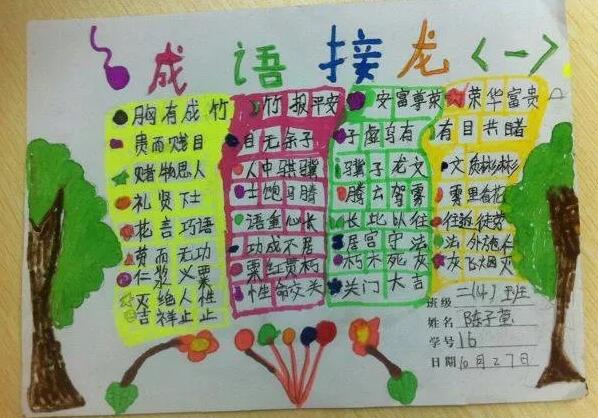 成语接龙<一>
胸有成竹 竹报平安 安富尊荣 荣华富贵
贵而贱目 目无余子 子虚乌有 有目共睹
睹物思人 人中骐骥 骥子龙文 文质彬彬
礼贤下士 士饱马腾 腾云驾雾 雾里看花
花言巧语 语重心长 长此以往 往返徒劳
劳而无功 功成不居 居官守法 法外施仁
仁浆义粟 粟红贯朽 朽木死灰 灰飞烟灭
灭绝人性 性命交关 关门大吉
吉祥止止
班级 二(4)班
姓名 陈子萱
学号 16
日期 10月27日